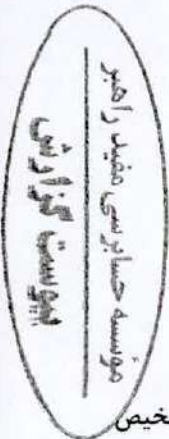 موسسه حسابرسی مفید راهبر
پیوست گزارش
خیص